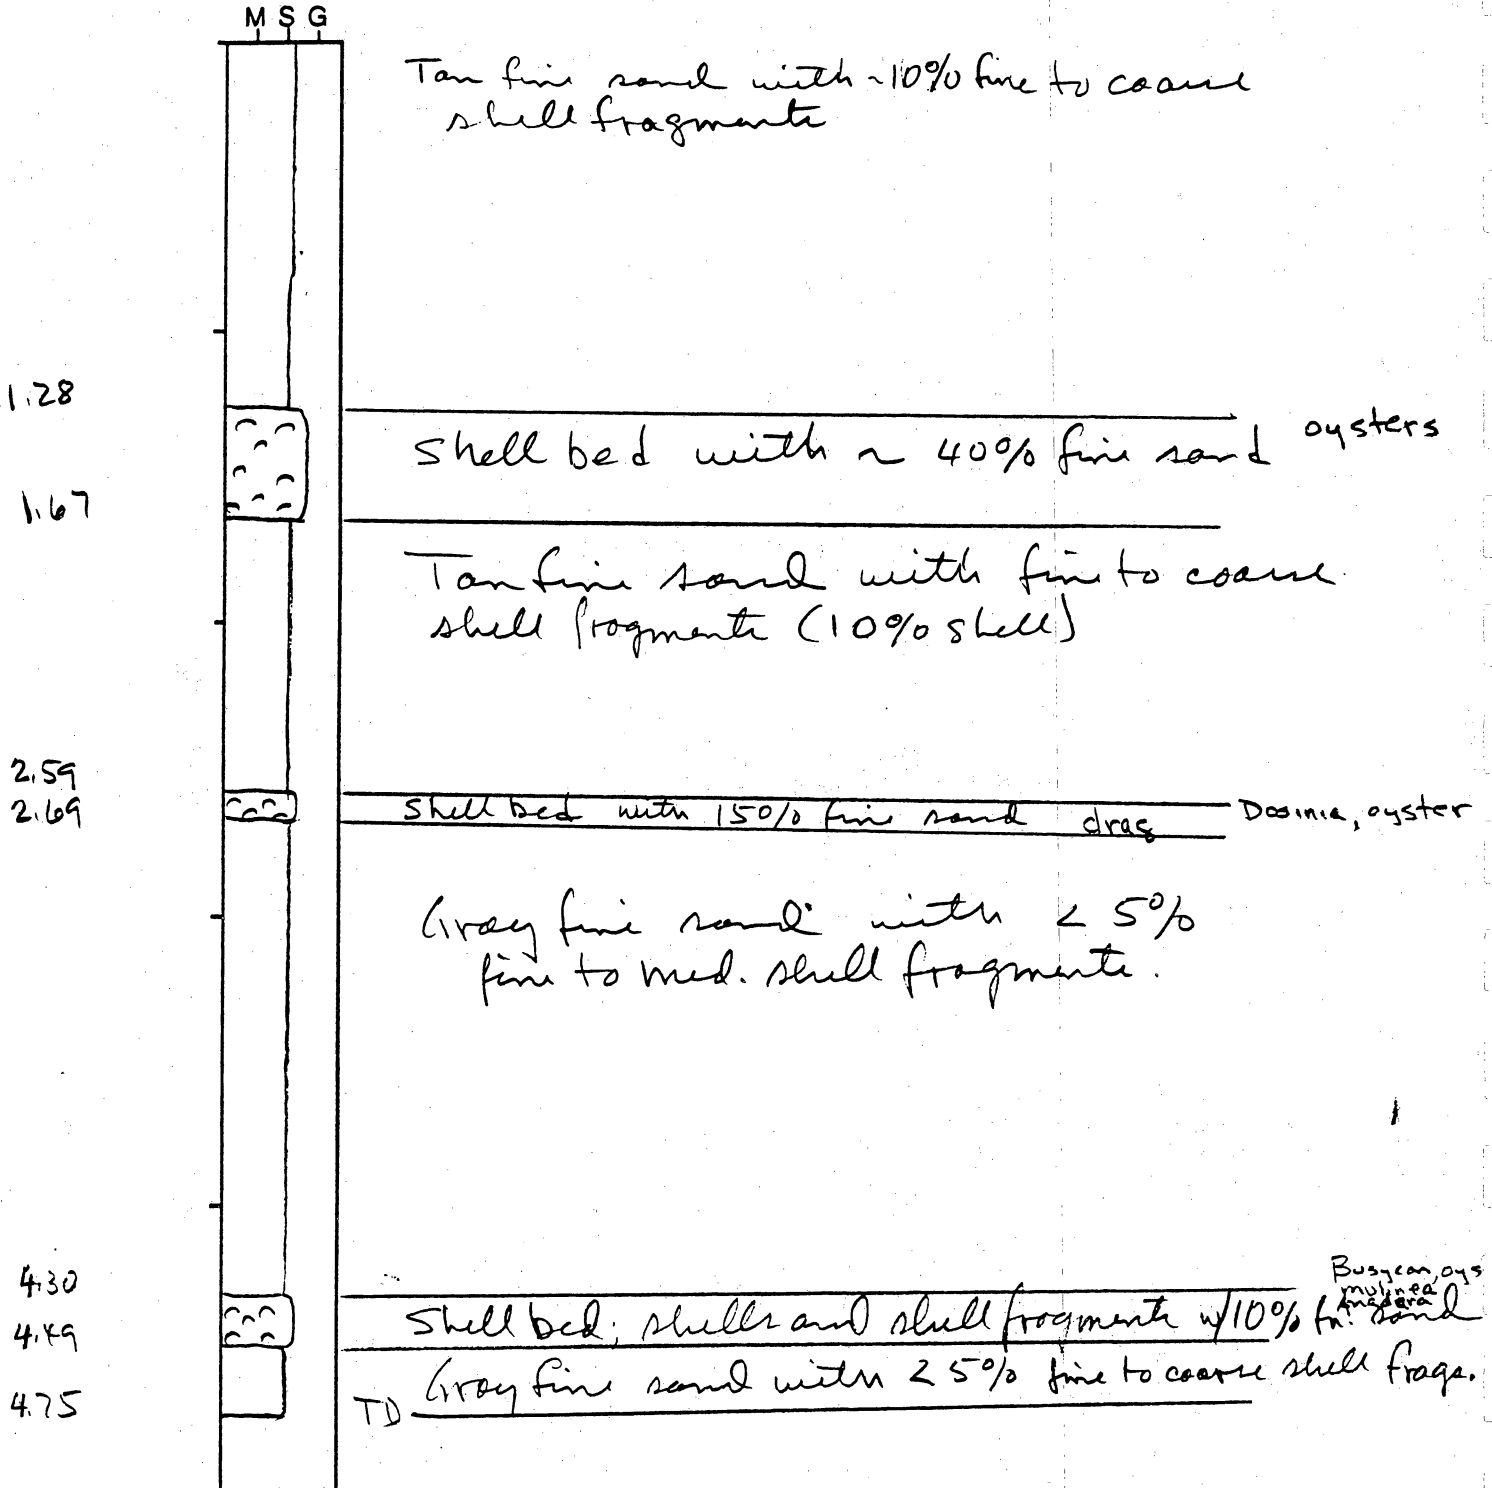 M S G
Tan fine sand with ~10% fine to coarse
shell fragments
1.28
oysters
Shell bed with ~ 40% fine sand
1.67
Tan fine sand with fine to coarse
shell fragments (10% shell)
2.59
2.69
Shell bed with 15% fine sand
Dosinia, oyster
Gray fine sand with < 5%
fine to med. shell fragments.
4.30
Busycon, oys
mulinea
Anadara
Shell bed; shells and shell fragments w/10% fn. sand
4.49
Gray fine sand with < 5% fine to coarse shell frags.
4.75
TD